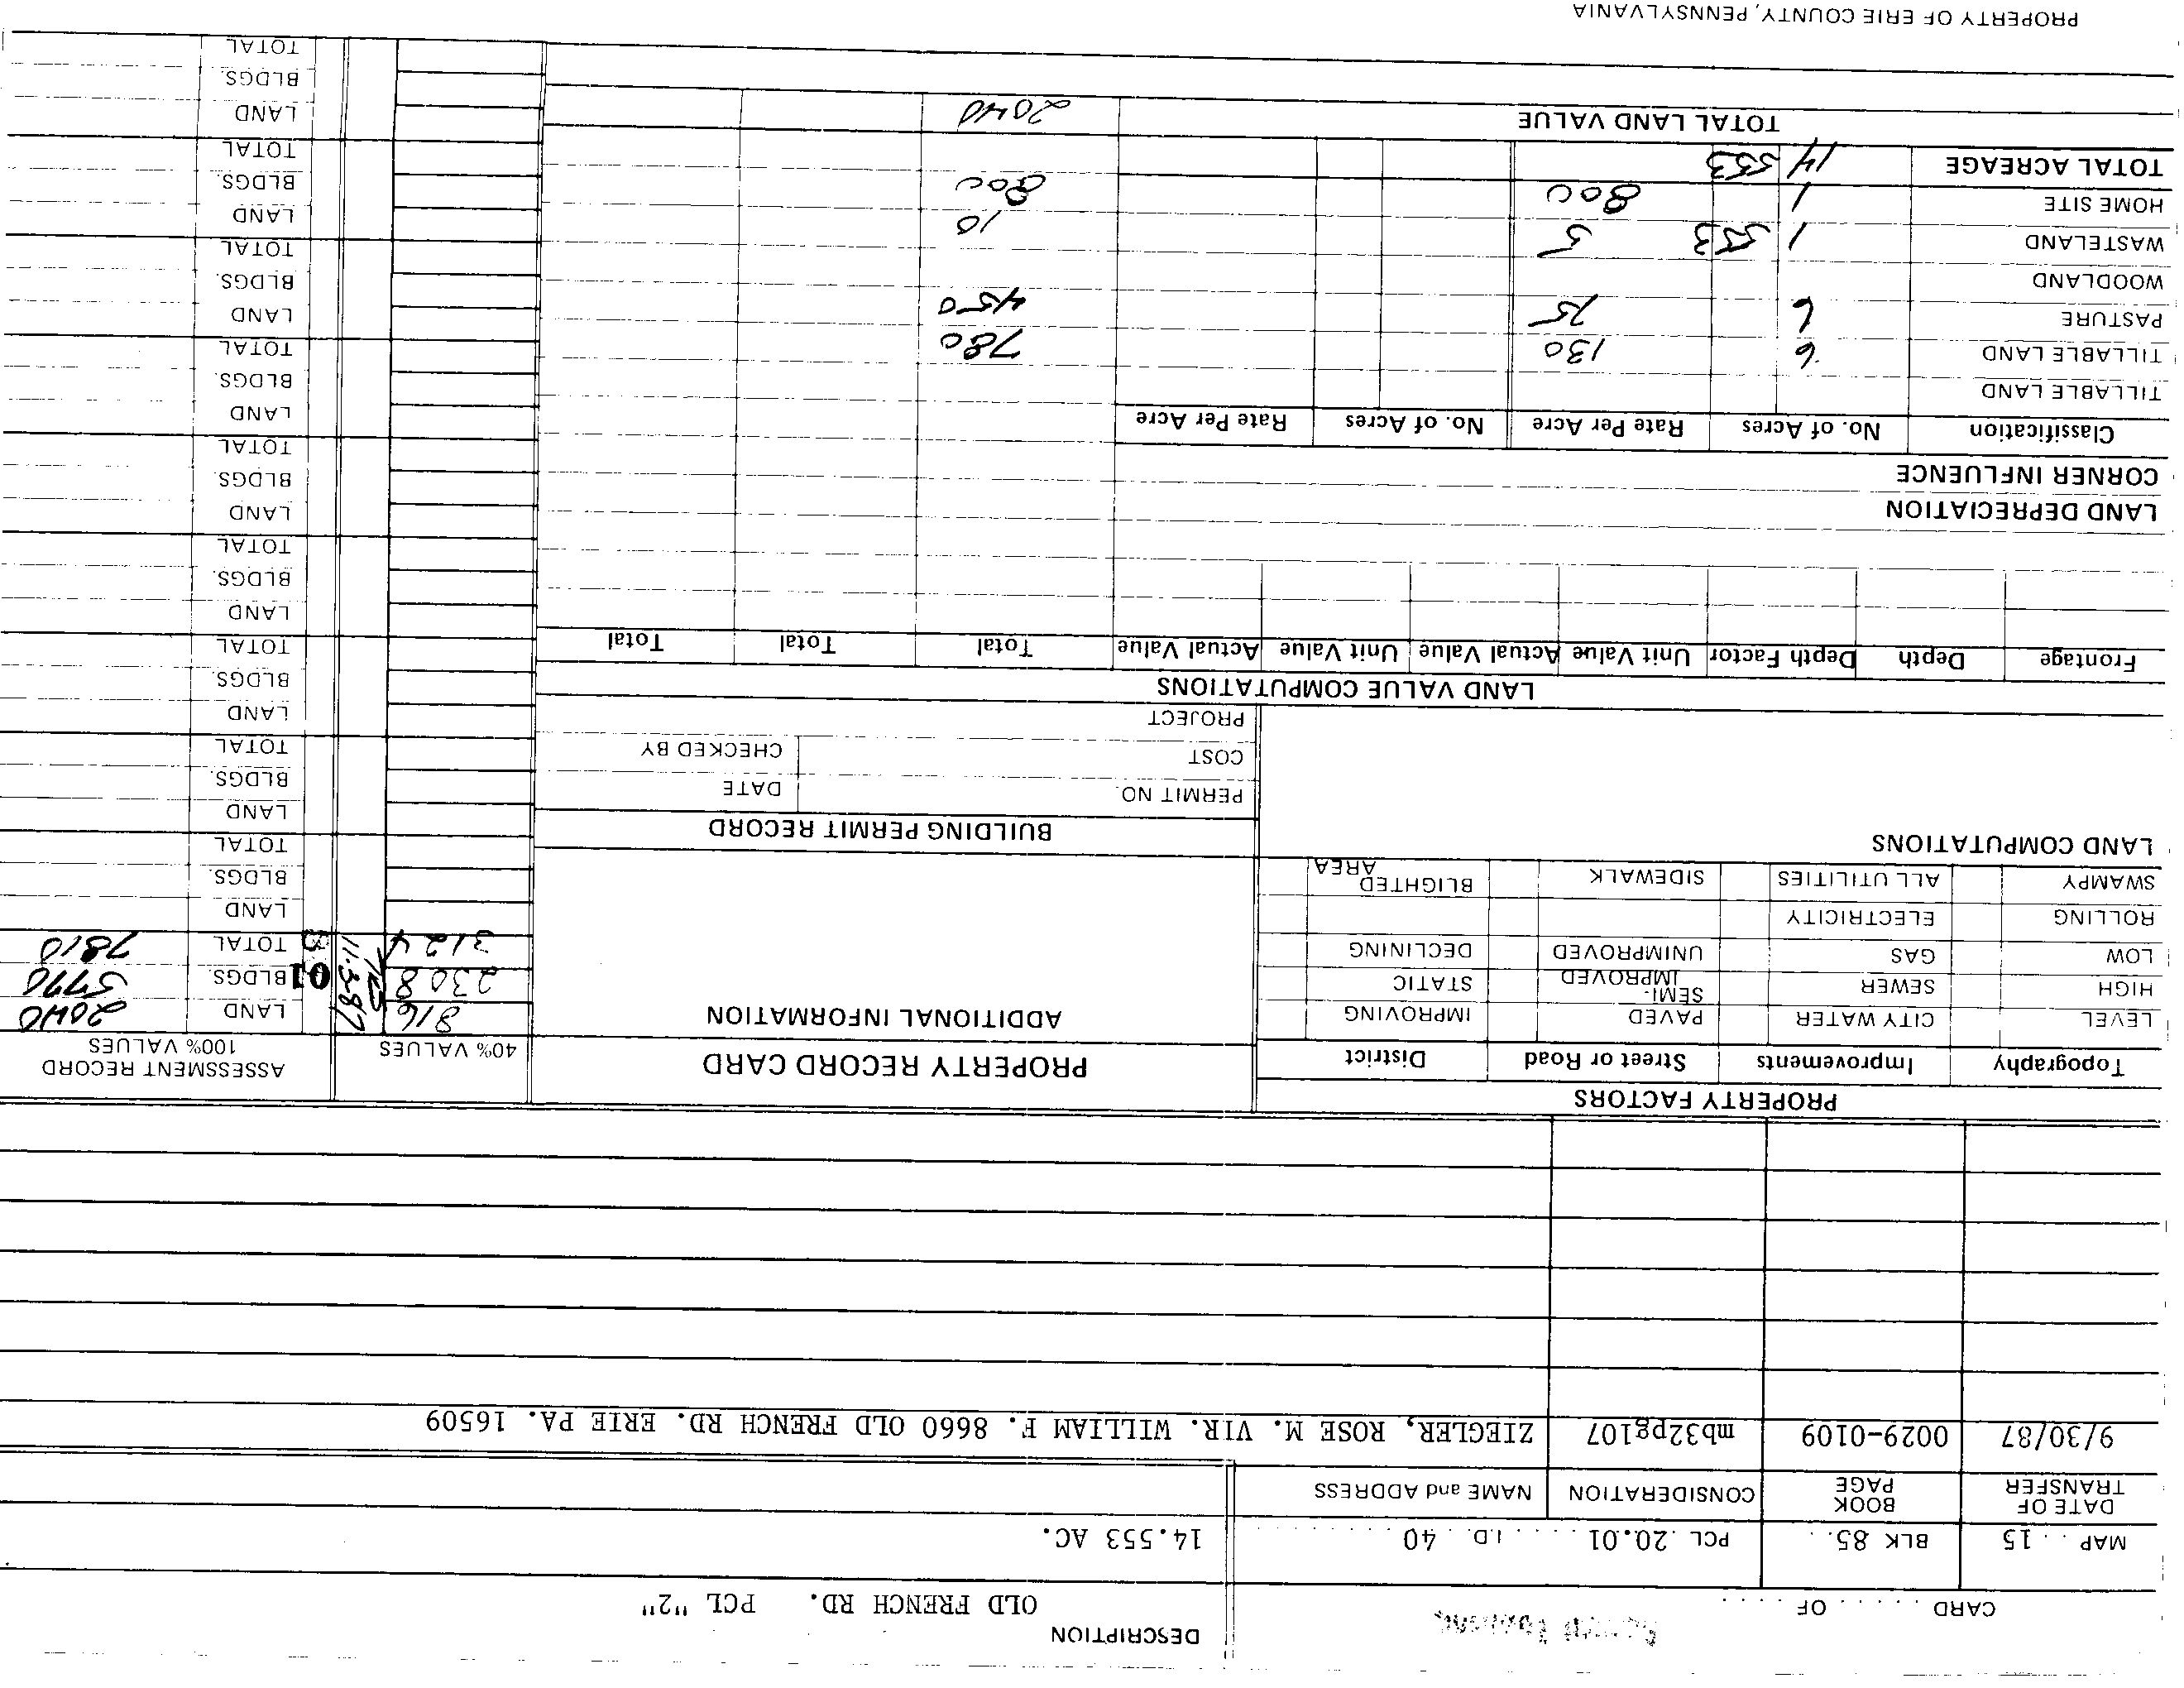 DESCRIPTION
CARD . . . . . OF . . . .
OLD FRENCH RD. PCL "2"
MAP . . 15 BLK 85. . PCL .20.01 . . . . I.D. 40 . . . . . . . . 14.553 AC.
DATE OF TRANSFER BOOK PAGE CONSIDERATION NAME and ADDRESS
9/30/87 0029-0109 mb32pg107 ZIEGLER, ROSE M. VIR. WILLIAM F. 8660 OLD FRENCH RD. ERIE PA. 16509
PROPERTY FACTORS
Topography Improvements Street or Road District
LEVEL CITY WATER PAVED IMPROVING
HIGH SEWER SEMI-IMPROVED STATIC
LOW GAS UNIMPROVED DECLINING
ROLLING ELECTRICITY
SWAMPY ALL UTILITIES SIDEWALK BLIGHTED AREA
LAND COMPUTATIONS
PROPERTY RECORD CARD
ADDITIONAL INFORMATION
BUILDING PERMIT RECORD
PERMIT NO. DATE
COST CHECKED BY
PROJECT
40% VALUES
ASSESSMENT RECORD
100% VALUES
816 11-3-87 LAND 2040
2308 01 BLDGS. 5770
3124 TOTAL 7810
LAND
BLDGS.
TOTAL
LAND
BLDGS.
TOTAL
LAND
BLDGS.
TOTAL
LAND
BLDGS.
TOTAL
LAND
BLDGS.
TOTAL
LAND
BLDGS.
TOTAL
LAND
BLDGS.
TOTAL
LAND
BLDGS.
TOTAL
LAND
BLDGS.
TOTAL
LAND VALUE COMPUTATIONS
Frontage Depth Depth Factor Unit Value Actual Value Unit Value Actual Value Total Total Total
LAND DEPRECIATION
CORNER INFLUENCE
Classification No. of Acres Rate Per Acre No. of Acres Rate Per Acre
TILLABLE LAND
TILLABLE LAND 6 130 780
PASTURE 6 75 450
WOODLAND
WASTELAND 1 553 5 10
HOME SITE 1 800 800
TOTAL ACREAGE 14 553
TOTAL LAND VALUE 2040
PROPERTY OF ERIE COUNTY, PENNSYLVANIA